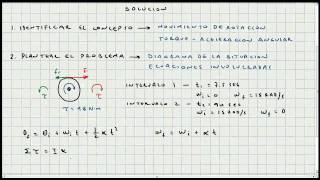 SOLUCION
1. IDENTIFICAR EL CONCEPTO → MOVIMIENTO DE ROTACION
TORQUE - ACELERACION ANGULAR
2. PLANTEAR EL PROBLEMA → DIAGRAMA DE LA SITUACION
ECUACIONES INVOLUCRADAS
INTERVALO 1 - t₁ = 7.5 seg
ωi = 0 ωf = 18 rad/s
INTERVALO 2 -
ωi = 18 rad/s ωf = 0
θf = θi + ωi t + ½ α t² ωf = ωi + α t
Σ τ = I α